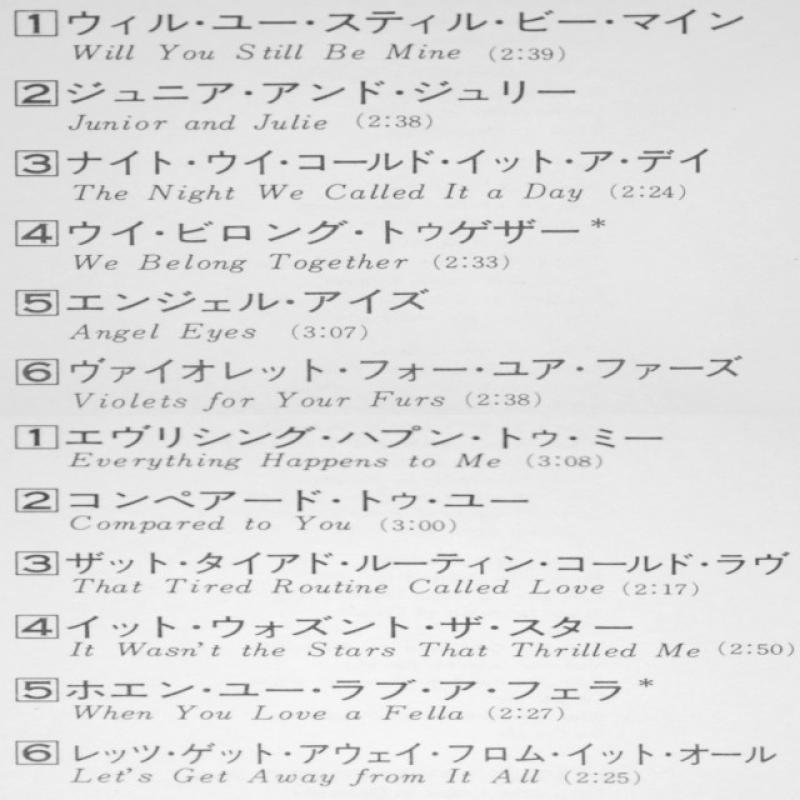 1 ウィル・ユー・スティル・ビー・マイン
Will You Still Be Mine (2:39)
2 ジュニア・アンド・ジュリー
Junior and Julie (2:38)
3 ナイト・ウイ・コールド・イット・ア・デイ
The Night We Called It a Day (2:24)
4 ウイ・ビロング・トゥゲザー*
We Belong Together (2:33)
5 エンジェル・アイズ
Angel Eyes (3:07)
6 ヴァイオレット・フォー・ユア・ファーズ
Violets for Your Furs (2:38)
1 エヴリシング・ハプン・トゥ・ミー
Everything Happens to Me (3:08)
2 コンペアード・トゥ・ユー
Compared to You (3:00)
3 ザット・タイアド・ルーティン・コールド・ラヴ
That Tired Routine Called Love (2:17)
4 イット・ウォズント・ザ・スター
It Wasn't the Stars That Thrilled Me (2:50)
5 ホエン・ユー・ラブ・ア・フェラ*
When You Love a Fella (2:27)
6 レッツ・ゲット・アウェイ・フロム・イット・オール
Let's Get Away from It All (2:25)